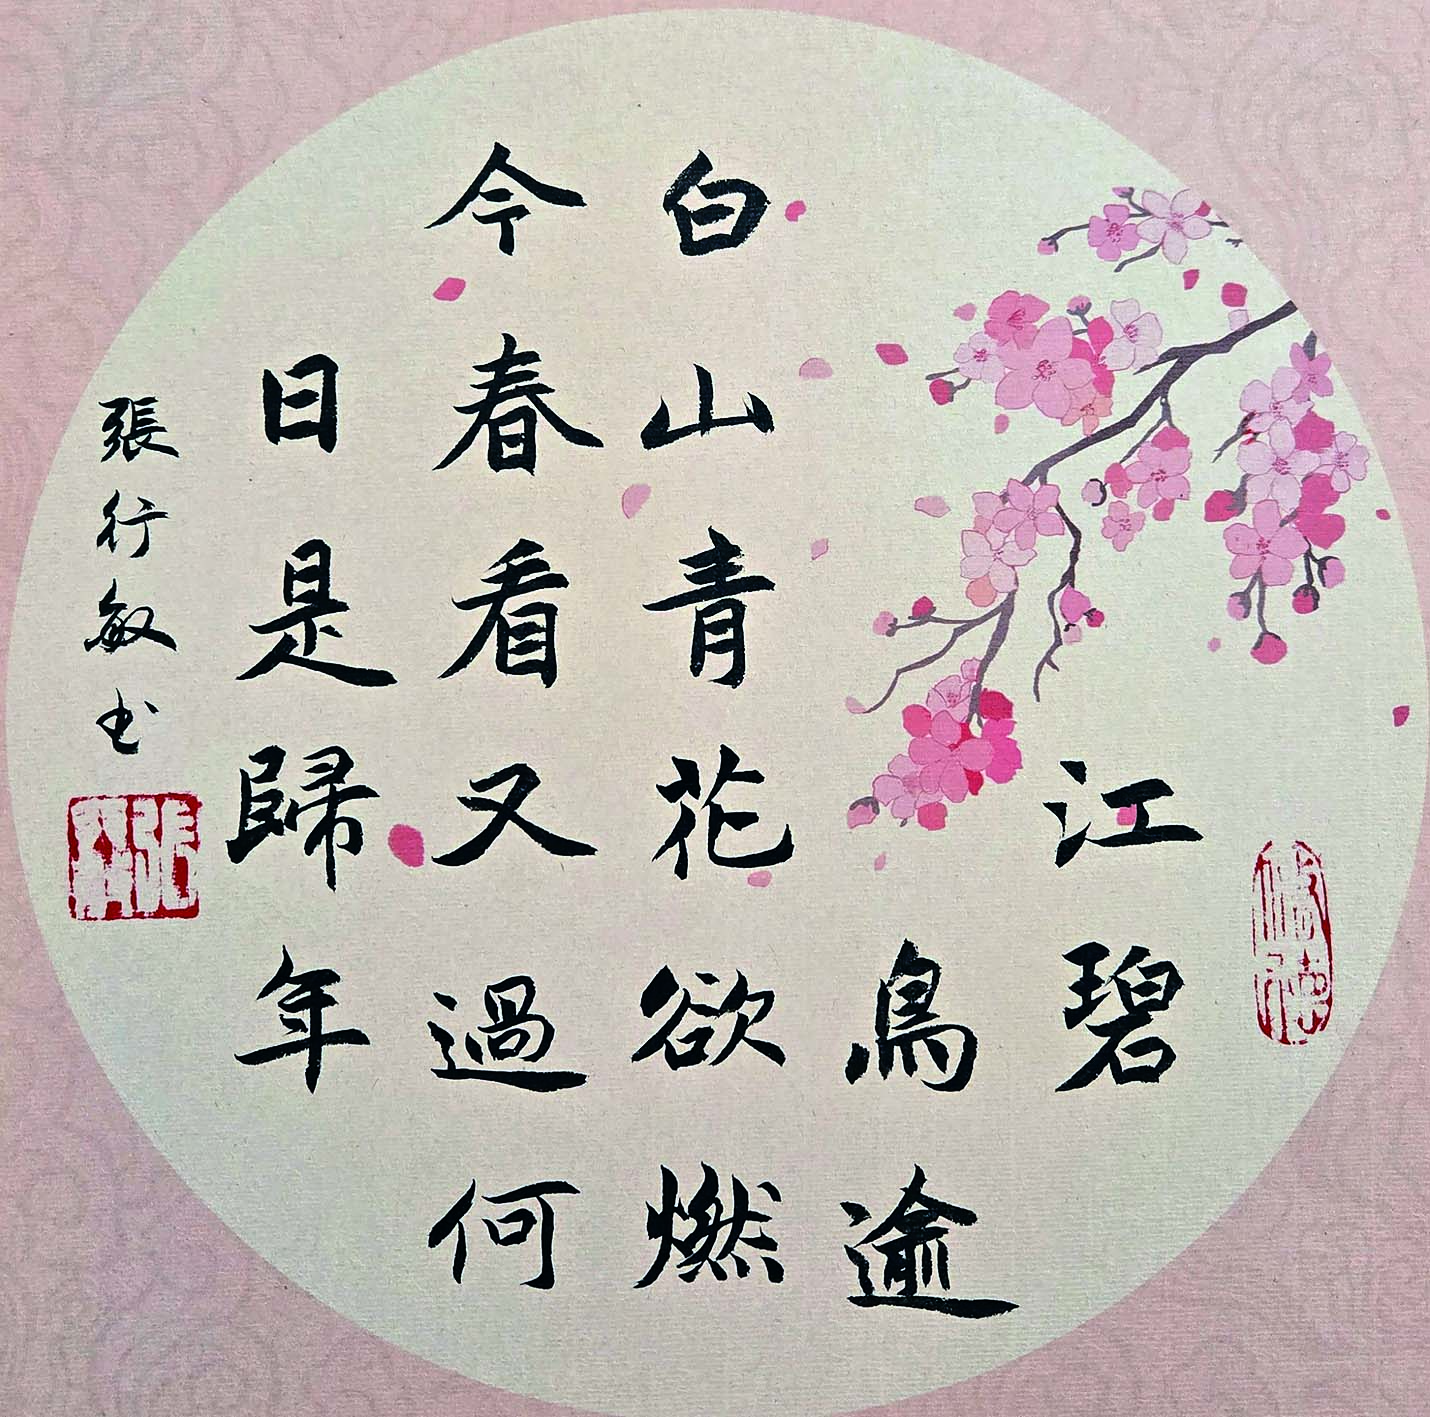 江碧
鳥逾
白山青花欲燃
今春看又過何
日是歸年
張行敏书